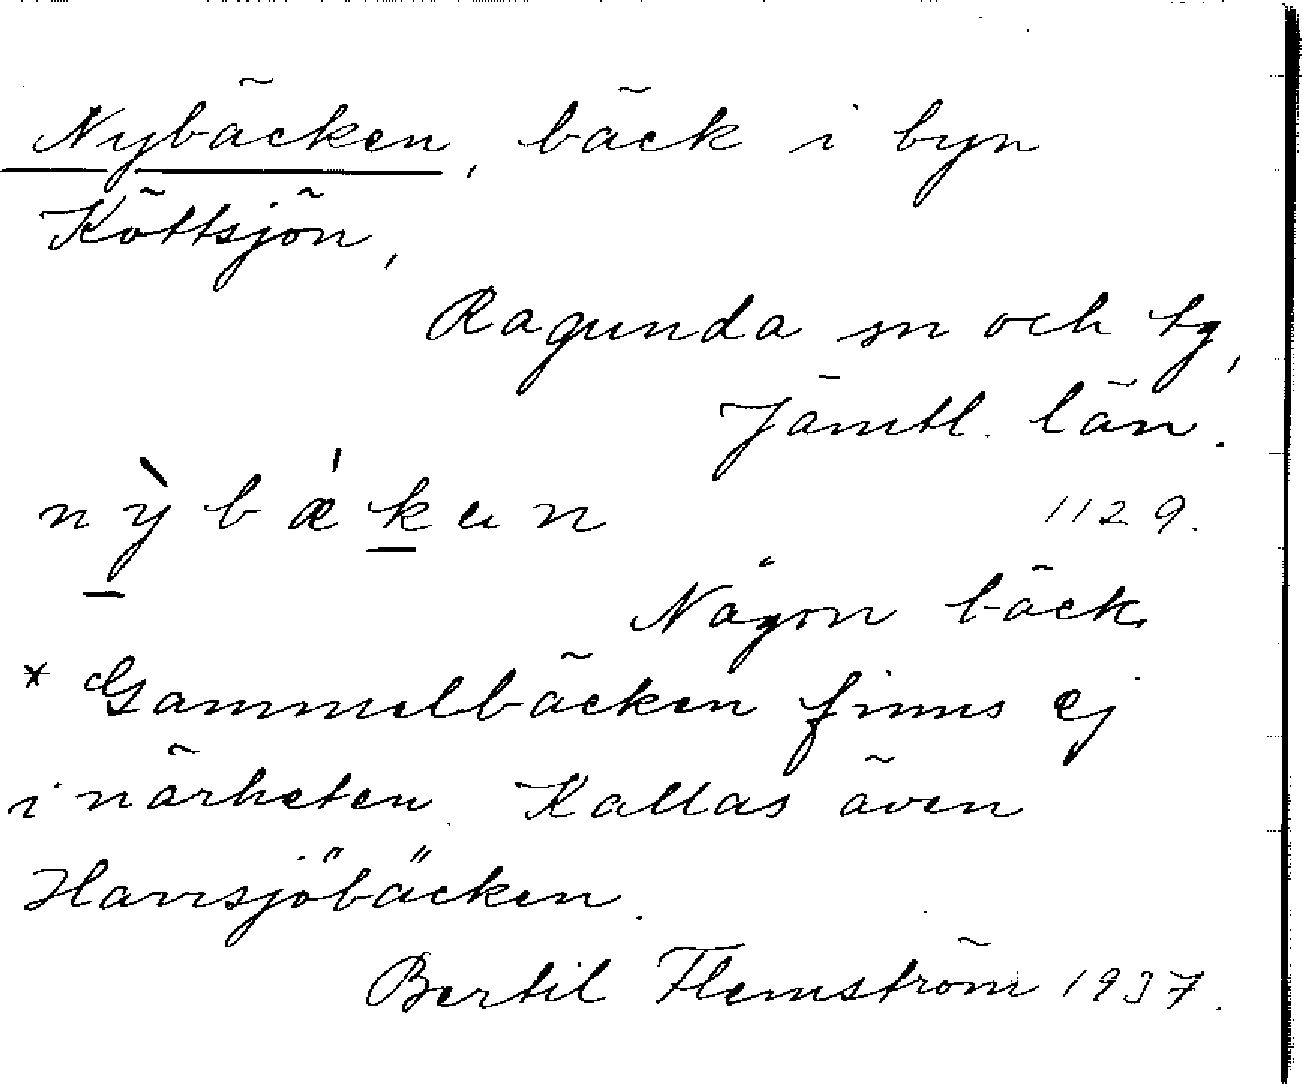 Nybäcken, bäck i byn
Köttsjön,
Ragunda sn och tg,
Jämtl. län.
nỳbǽken 1129.
Någon bäck
* Gammelbäcken finns ej
i närheten. Kallas även
Harrsjöbäcken.
Bertil Flemström 1937.